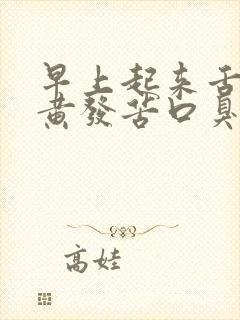 早上起来舌
黄發苦口臭
高娃